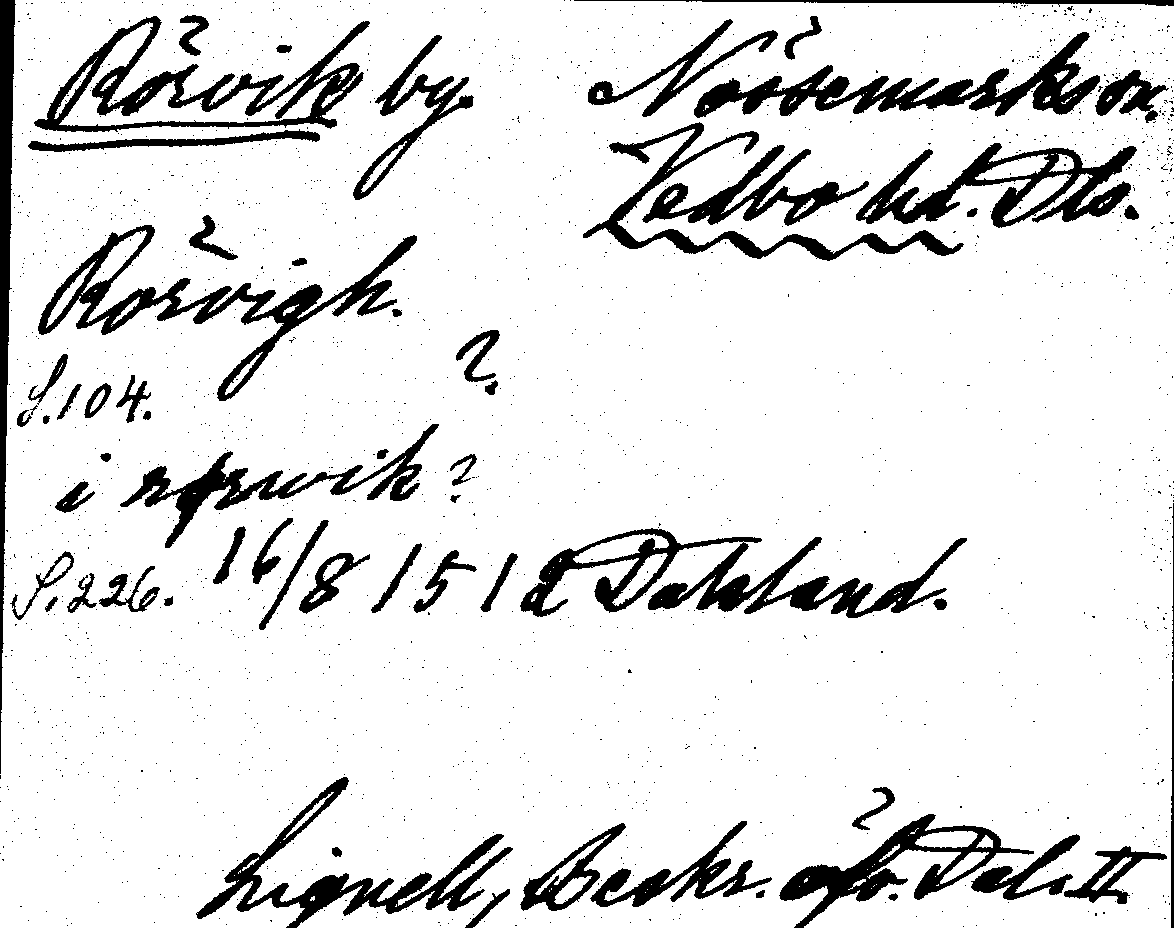 Rörvik by. Nössemarks sn.
Vedbo hd. Dls.
Rörvigh.
S. 104. ?
i rørwik ?
S. 226. 16/8 1512 Dalsland.
Lignell, Beskr. öfv. Dal. II.